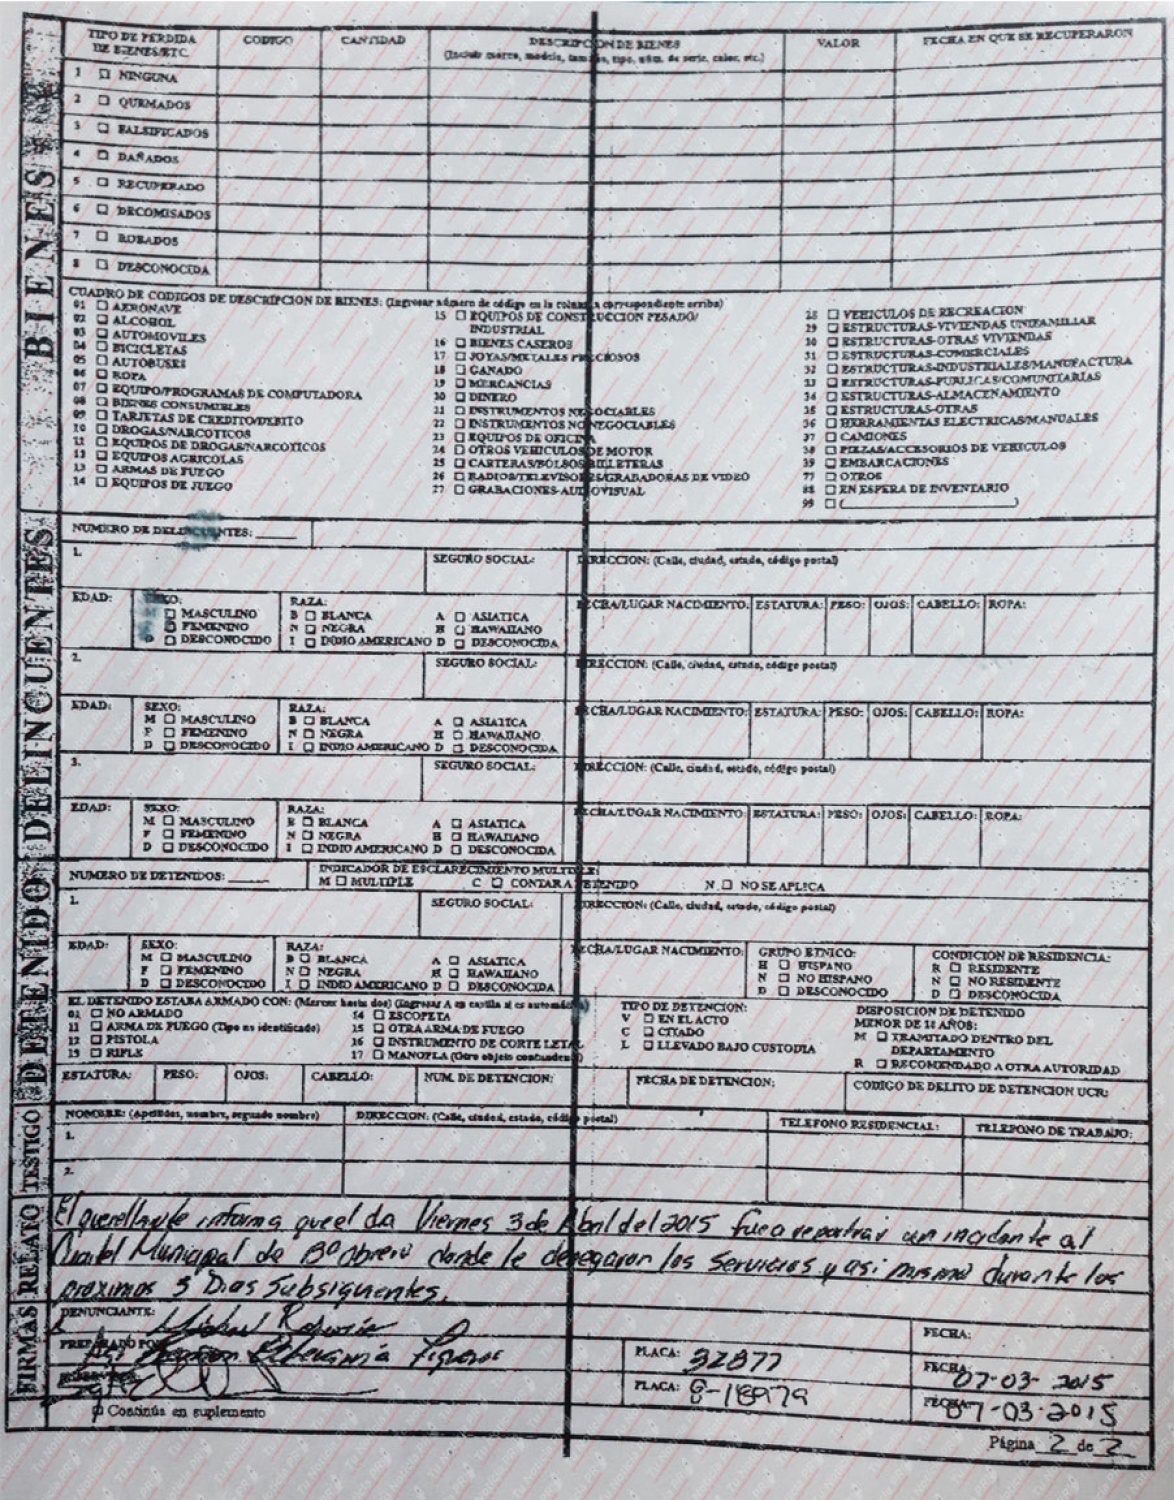 TIPO DE PERDIDA DE BIENES/ETC. CODIGO CANTIDAD DESCRIPCION DE BIENES VALOR FECHA EN QUE SE RECUPERARON
(Incluir marca, modelo, tamaño, tipo, núm. de serie, color, etc.)
BIENES
1 NINGUNA
2 QUEMADOS
3 FALSIFICADOS
4 DAÑADOS
5 RECUPERADO
6 DECOMISADOS
7 ROBADOS
8 DESCONOCIDA
CUADRO DE CODIGOS DE DESCRIPCION DE BIENES: (Ingresar número de código en la columna correspondiente arriba)
01 AERONAVE
02 ALCOHOL
03 AUTOMOVILES
04 BICICLETAS
05 AUTOBUSES
06 ROPA
07 EQUIPO/PROGRAMAS DE COMPUTADORA
08 BIENES CONSUMIBLES
09 TARJETAS DE CREDITO/DEBITO
10 DROGAS/NARCOTICOS
11 EQUIPOS DE DROGAS/NARCOTICOS
12 EQUIPOS AGRICOLAS
13 ARMAS DE FUEGO
14 EQUIPOS DE JUEGO
15 EQUIPOS DE CONSTRUCCION PESADO/
INDUSTRIAL
16 BIENES CASEROS
17 JOYAS/METALES PRECIOSOS
18 GANADO
19 MERCANCIAS
20 DINERO
21 INSTRUMENTOS NEGOCIABLES
22 INSTRUMENTOS NO NEGOCIABLES
23 EQUIPOS DE OFICINA
24 OTROS VEHICULOS DE MOTOR
25 CARTERAS/BOLSOS/BILLETERAS
26 RADIOS/TELEVISORES/GRABADORAS DE VIDEO
27 GRABACIONES-AUDIOVISUAL
28 VEHICULOS DE RECREACION
29 ESTRUCTURAS-VIVIENDAS UNIFAMILIAR
30 ESTRUCTURAS-OTRAS VIVIENDAS
31 ESTRUCTURAS-COMERCIALES
32 ESTRUCTURAS-INDUSTRIALES/MANUFACTURA
33 ESTRUCTURAS-PUBLICAS/COMUNITARIAS
34 ESTRUCTURAS-ALMACENAMIENTO
35 ESTRUCTURAS-OTRAS
36 HERRAMIENTAS ELECTRICAS/MANUALES
37 CAMIONES
38 PIEZAS/ACCESORIOS DE VEHICULOS
39 EMBARCACIONES
77 OTROS
88 EN ESPERA DE INVENTARIO
99 (
DETENIDO DELINCUENTES
NUMERO DE DELINCUENTES:
1. SEGURO SOCIAL: DIRECCION: (Calle, ciudad, estado, código postal)
EDAD: SEXO: RAZA: FECHA/LUGAR NACIMIENTO: ESTATURA: PESO: OJOS: CABELLO: ROPA:
M MASCULINO B BLANCA A ASIATICA
F FEMENINO N NEGRA H HAWAIIANO
D DESCONOCIDO I INDIO AMERICANO D DESCONOCIDA
2. SEGURO SOCIAL: DIRECCION: (Calle, ciudad, estado, código postal)
EDAD: SEXO: RAZA: FECHA/LUGAR NACIMIENTO: ESTATURA: PESO: OJOS: CABELLO: ROPA:
M MASCULINO B BLANCA A ASIATICA
F FEMENINO N NEGRA H HAWAIIANO
D DESCONOCIDO I INDIO AMERICANO D DESCONOCIDA
3. SEGURO SOCIAL: DIRECCION: (Calle, ciudad, estado, código postal)
EDAD: SEXO: RAZA: FECHA/LUGAR NACIMIENTO: ESTATURA: PESO: OJOS: CABELLO: ROPA:
M MASCULINO B BLANCA A ASIATICA
F FEMENINO N NEGRA H HAWAIIANO
D DESCONOCIDO I INDIO AMERICANO D DESCONOCIDA
NUMERO DE DETENIDOS: INDICADOR DE ESCLARECIMIENTO MULTIPLE:
M MULTIPLE C CONTAR A DETENIDO N NO SE APLICA
1. SEGURO SOCIAL: DIRECCION: (Calle, ciudad, estado, código postal)
EDAD: SEXO: RAZA: FECHA/LUGAR NACIMIENTO: GRUPO ETNICO: CONDICION DE RESIDENCIA:
M MASCULINO B BLANCA A ASIATICA H HISPANO R RESIDENTE
F FEMENINO N NEGRA H HAWAIIANO N NO HISPANO N NO RESIDENTE
D DESCONOCIDO I INDIO AMERICANO D DESCONOCIDA D DESCONOCIDO D DESCONOCIDA
EL DETENIDO ESTABA ARMADO CON: (Marcar hasta dos) (Ingresar A en casilla si es automática)
01 NO ARMADO
11 ARMA DE FUEGO (Tipo no identificado)
12 PISTOLA
13 RIFLE
14 ESCOPETA
15 OTRA ARMA DE FUEGO
16 INSTRUMENTO DE CORTE LETAL
17 MANOPLA (Otro objeto contundente)
TIPO DE DETENCION:
V EN EL ACTO
C CITADO
L LLEVADO BAJO CUSTODIA
DISPOSICION DE DETENIDO
MENOR DE 18 AÑOS:
M TRAMITADO DENTRO DEL
DEPARTAMENTO
R RECOMENDADO A OTRA AUTORIDAD
ESTATURA: PESO: OJOS: CABELLO: NUM. DE DETENCION: FECHA DE DETENCION: CODIGO DE DELITO DE DETENCION UCR:
TESTIGO
NOMBRE: (Apellidos, nombre, segundo nombre) DIRECCION: (Calle, ciudad, estado, código postal) TELEFONO RESIDENCIAL: TELEFONO DE TRABAJO:
1.
2.
RELATO
El querellante informa que el dia Viernes 3 de Abril del 2015 fue a reportrar un incidente al
Cuartel Municipal de Bo obrero donde le denegaron los Servicios y asi mismo durante los
proximos 3 Dias Subsiguientes.
FIRMAS
DENUNCIANTE: Michael FECHA:
PREPARADO POR: Figueroa PLACA: 32877 FECHA: 07-03-2015
PLACA: 8-18979 FECHA: 07-03-2015
Continúa en suplemento
Página 2 de 2